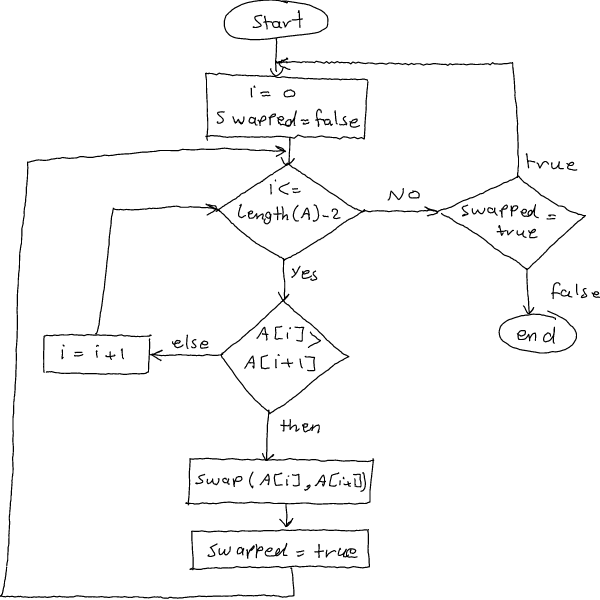 Start
i = 0
Swapped = false
true
i <=
length(A)-2
NO
swapped =
true
yes
false
end
A[i] >
A[i+1]
else
i = i+1
then
swap(A[i], A[i+1])
swapped = true